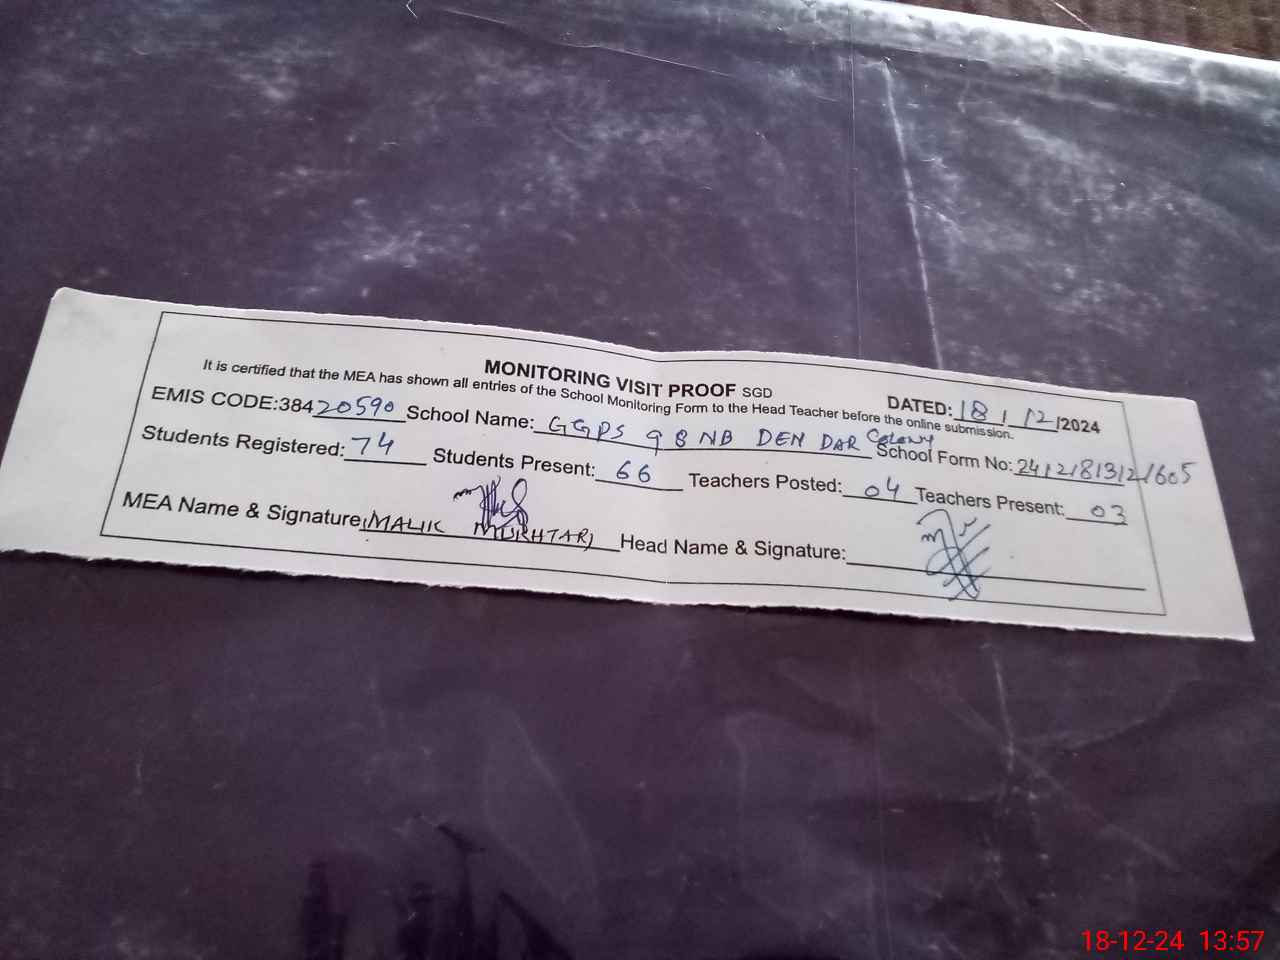 MONITORING VISIT PROOF SGD
DATED: 18 / 12 /2024
It is certified that the MEA has shown all entries of the School Monitoring Form to the Head Teacher before the online submission.
EMIS CODE:38420590 School Name: GGPS 98 NB DEN DAR Colony School Form No:
Students Registered: 74 Students Present: 66 Teachers Posted: 04 Teachers Present: 03
MEA Name & Signature MALIK MUKHTAR Head Name & Signature:
18-12-24 13:57